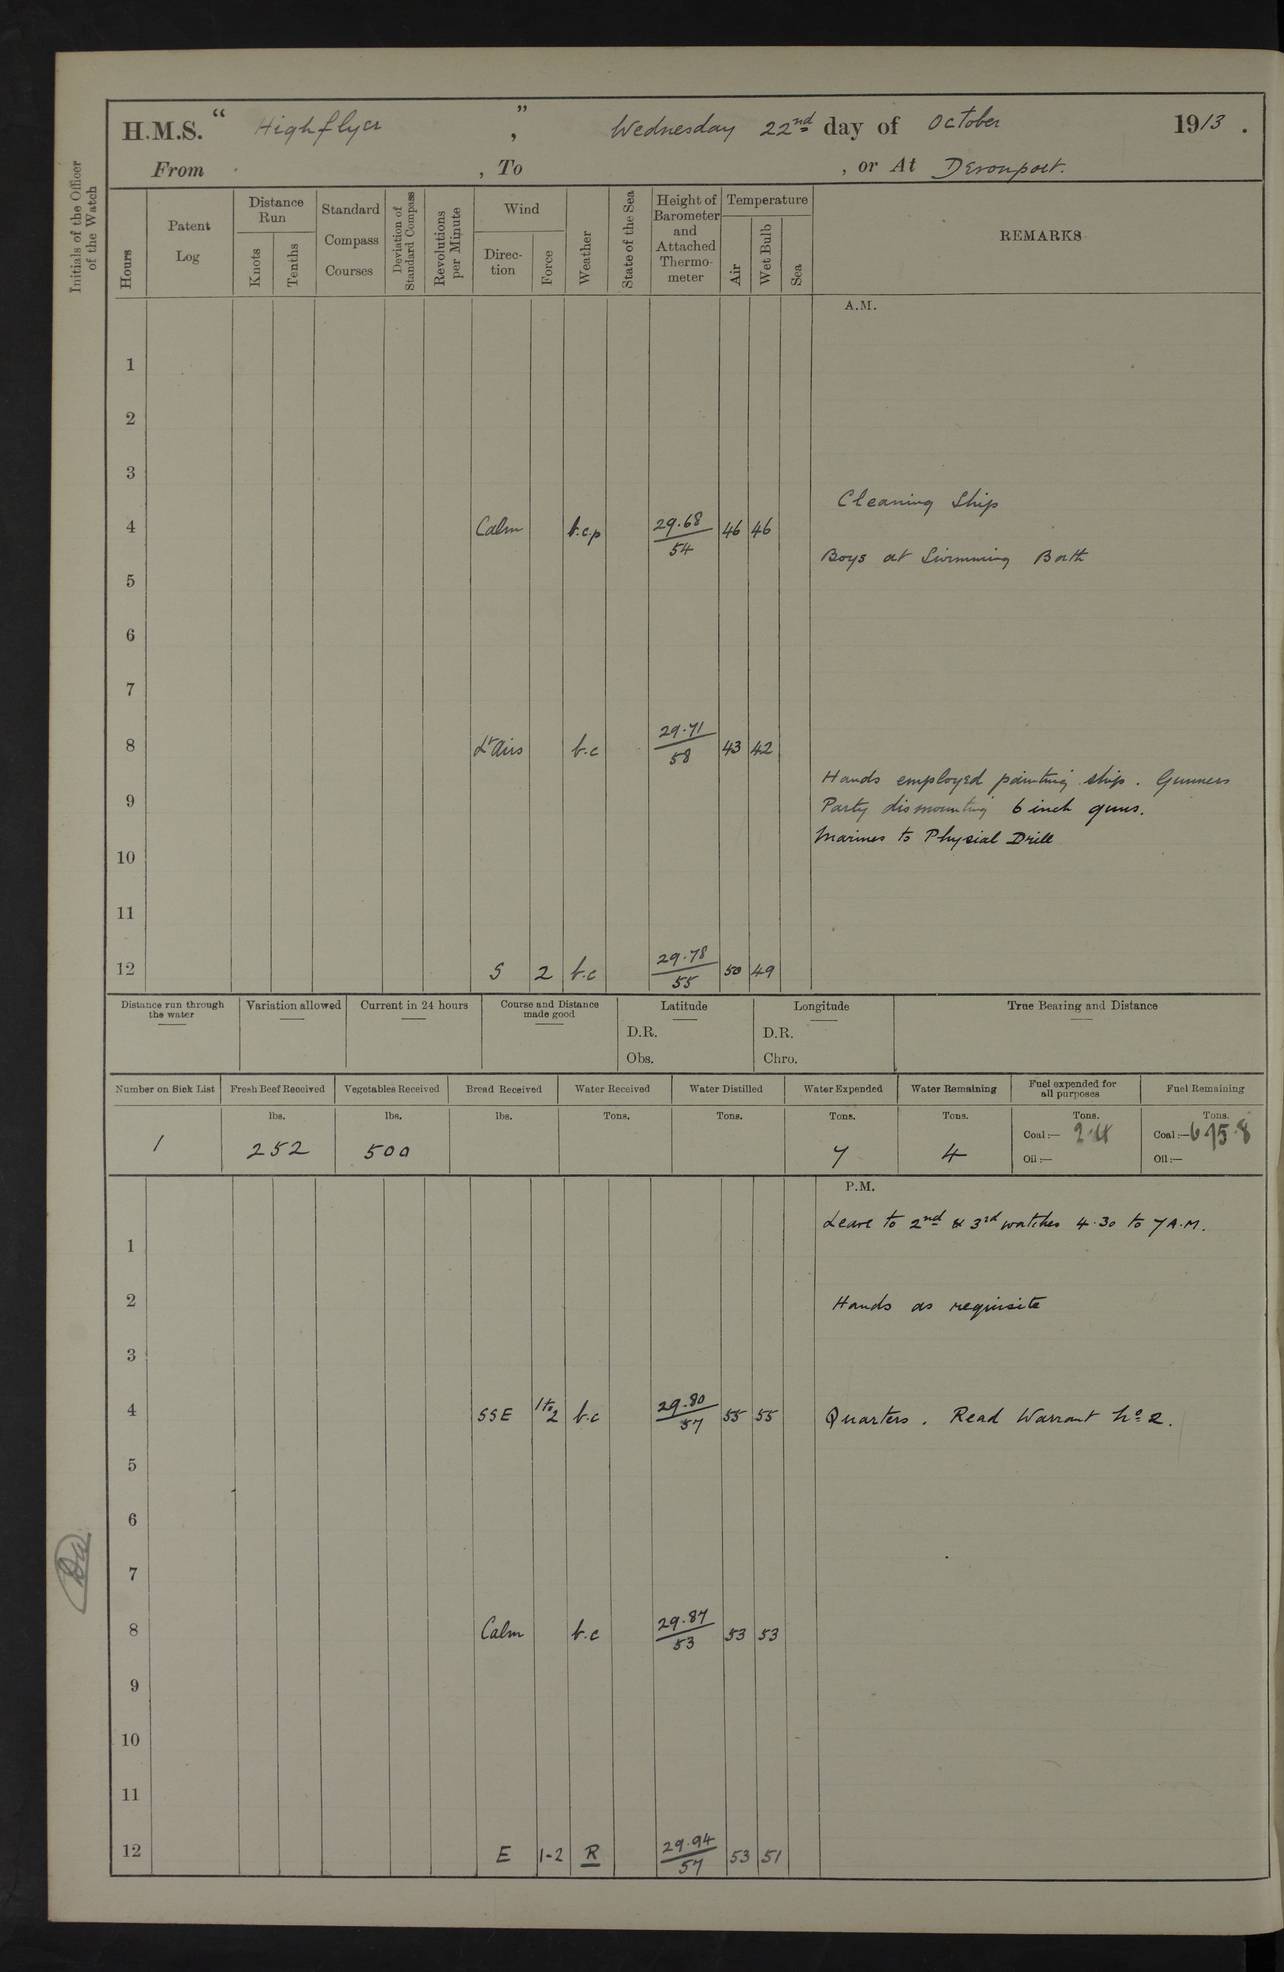 H.M.S. " Highflyer ", Wednesday 22nd day of October 1913.
From , To , or At Devonport.
Initials of the Officer of the Watch
Hours
Patent Log
Distance Run
Knots
Tenths
Standard Compass Courses
Deviation of Standard Compass
Revolutions per Minute
Wind
Direction
Force
Weather
State of the Sea
Height of Barometer and Attached Thermometer
Temperature
Air
Wet Bulb
Sea
REMARKS
A.M.
1
2
3
Cleaning Ship
4 Calm b.c.p 29.68/54 46 46
Boys at Swimming Bath
5
6
7
8 Lt Airs b.c 29.71/58 43 42
Hands employed painting ship. Gunners
9 Party dismounting 6 inch guns.
Marines to Physial Drill
10
11
12 S 2 b.c 29.78/55 50 49
Distance run through the water
Variation allowed
Current in 24 hours
Course and Distance made good
Latitude
D.R.
Obs.
Longitude
D.R.
Chro.
True Bearing and Distance
Number on Sick List
Fresh Beef Received
Vegetables Received
Bread Received
Water Received
Water Distilled
Water Expended
Water Remaining
Fuel expended for all purposes
Fuel Remaining
lbs. lbs. lbs. Tons. Tons. Tons. Tons. Tons. Tons.
1 252 500 7 4 Coal:— Coal:—
Oil:— Oil:—
P.M.
Leave to 2nd & 3rd watches 4.30 to 7 A.M.
1
2 Hands as requisite
3
4 SSE 1 to 2 b.c 29.80/57 55 55 Quarters. Read Warrant No 2.
5
6
7
8 Calm b.c 29.87/53 53 53
9
10
11
12 E 1-2 R 29.94/57 53 51